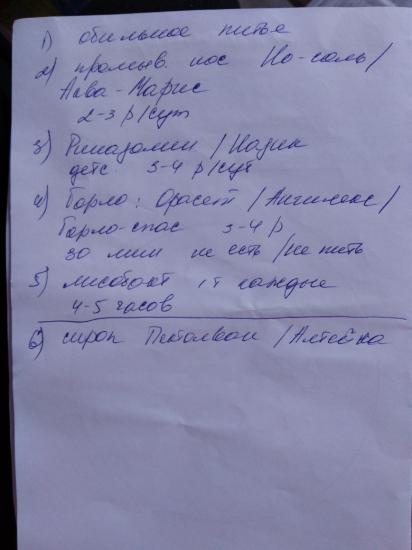 1) обильное питье
2) промыв. нос Но-соль/
Аква-Марис
2-3 р/сут
3) Риназолин/Назик
детс. 3-4 р/сут
4) Горло: Орасепт/Ангилекс/
Горло-спас 3-4 р
30 мин не есть/не пить
5) лисобакт 1т каждые
4-5 часов
6) сироп Пектолван/Алтейка